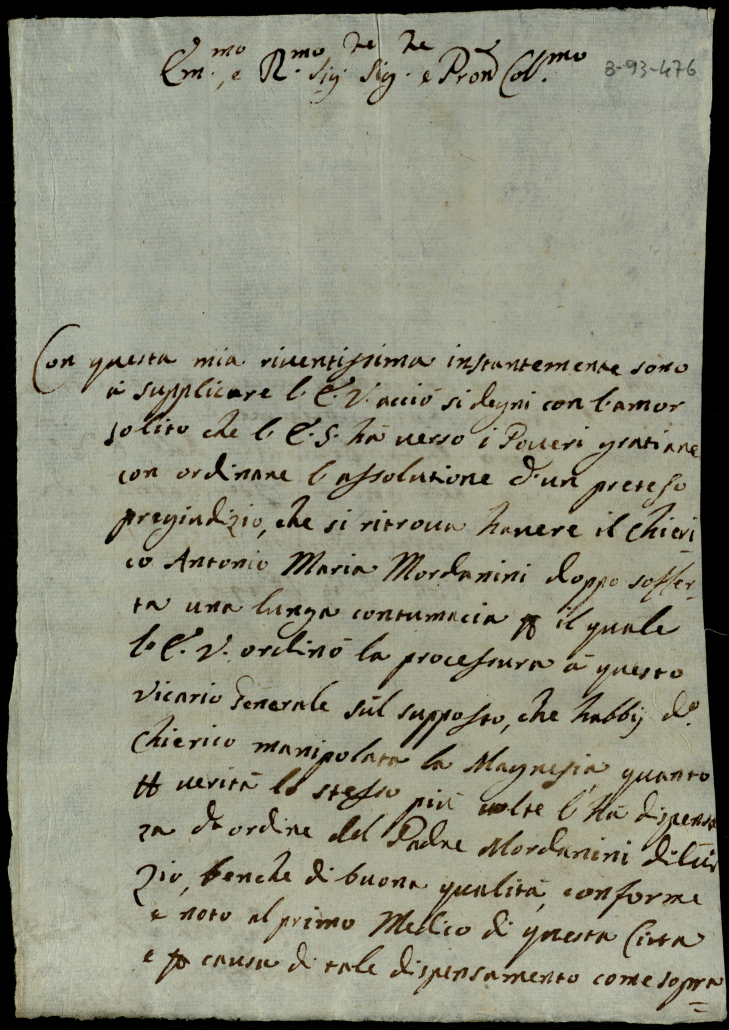 Em.mo, e R.mo Sig.re Sig.re e Pron Col.mo 3-93-476
Con questa mia riventissima instantemente sono
à supplicare l. E. V. acciò si degni con l'amor
solito che l. E. S. hà verso i Poueri gratiare
con ordinare l'assolutione d'un preteso
pregiudizio, che si ritroua hauere il Chieri
co Antonio Maria Mordanini doppo soffer-
ta una lunga contumacia il quale
l. E. V. ordinò la processura à questo
Vicario Generale sùl supposto, che habbij do.
Chierico manipolata la Magnesia, quanto
verità lo stesso più uolte l'hà dispensa
za d'ordine del Padre Mordanini di
zio, benche di buona qualità, conforme
è noto al primo Medico di questa Citta
e causa di tale dispensamento come sopra